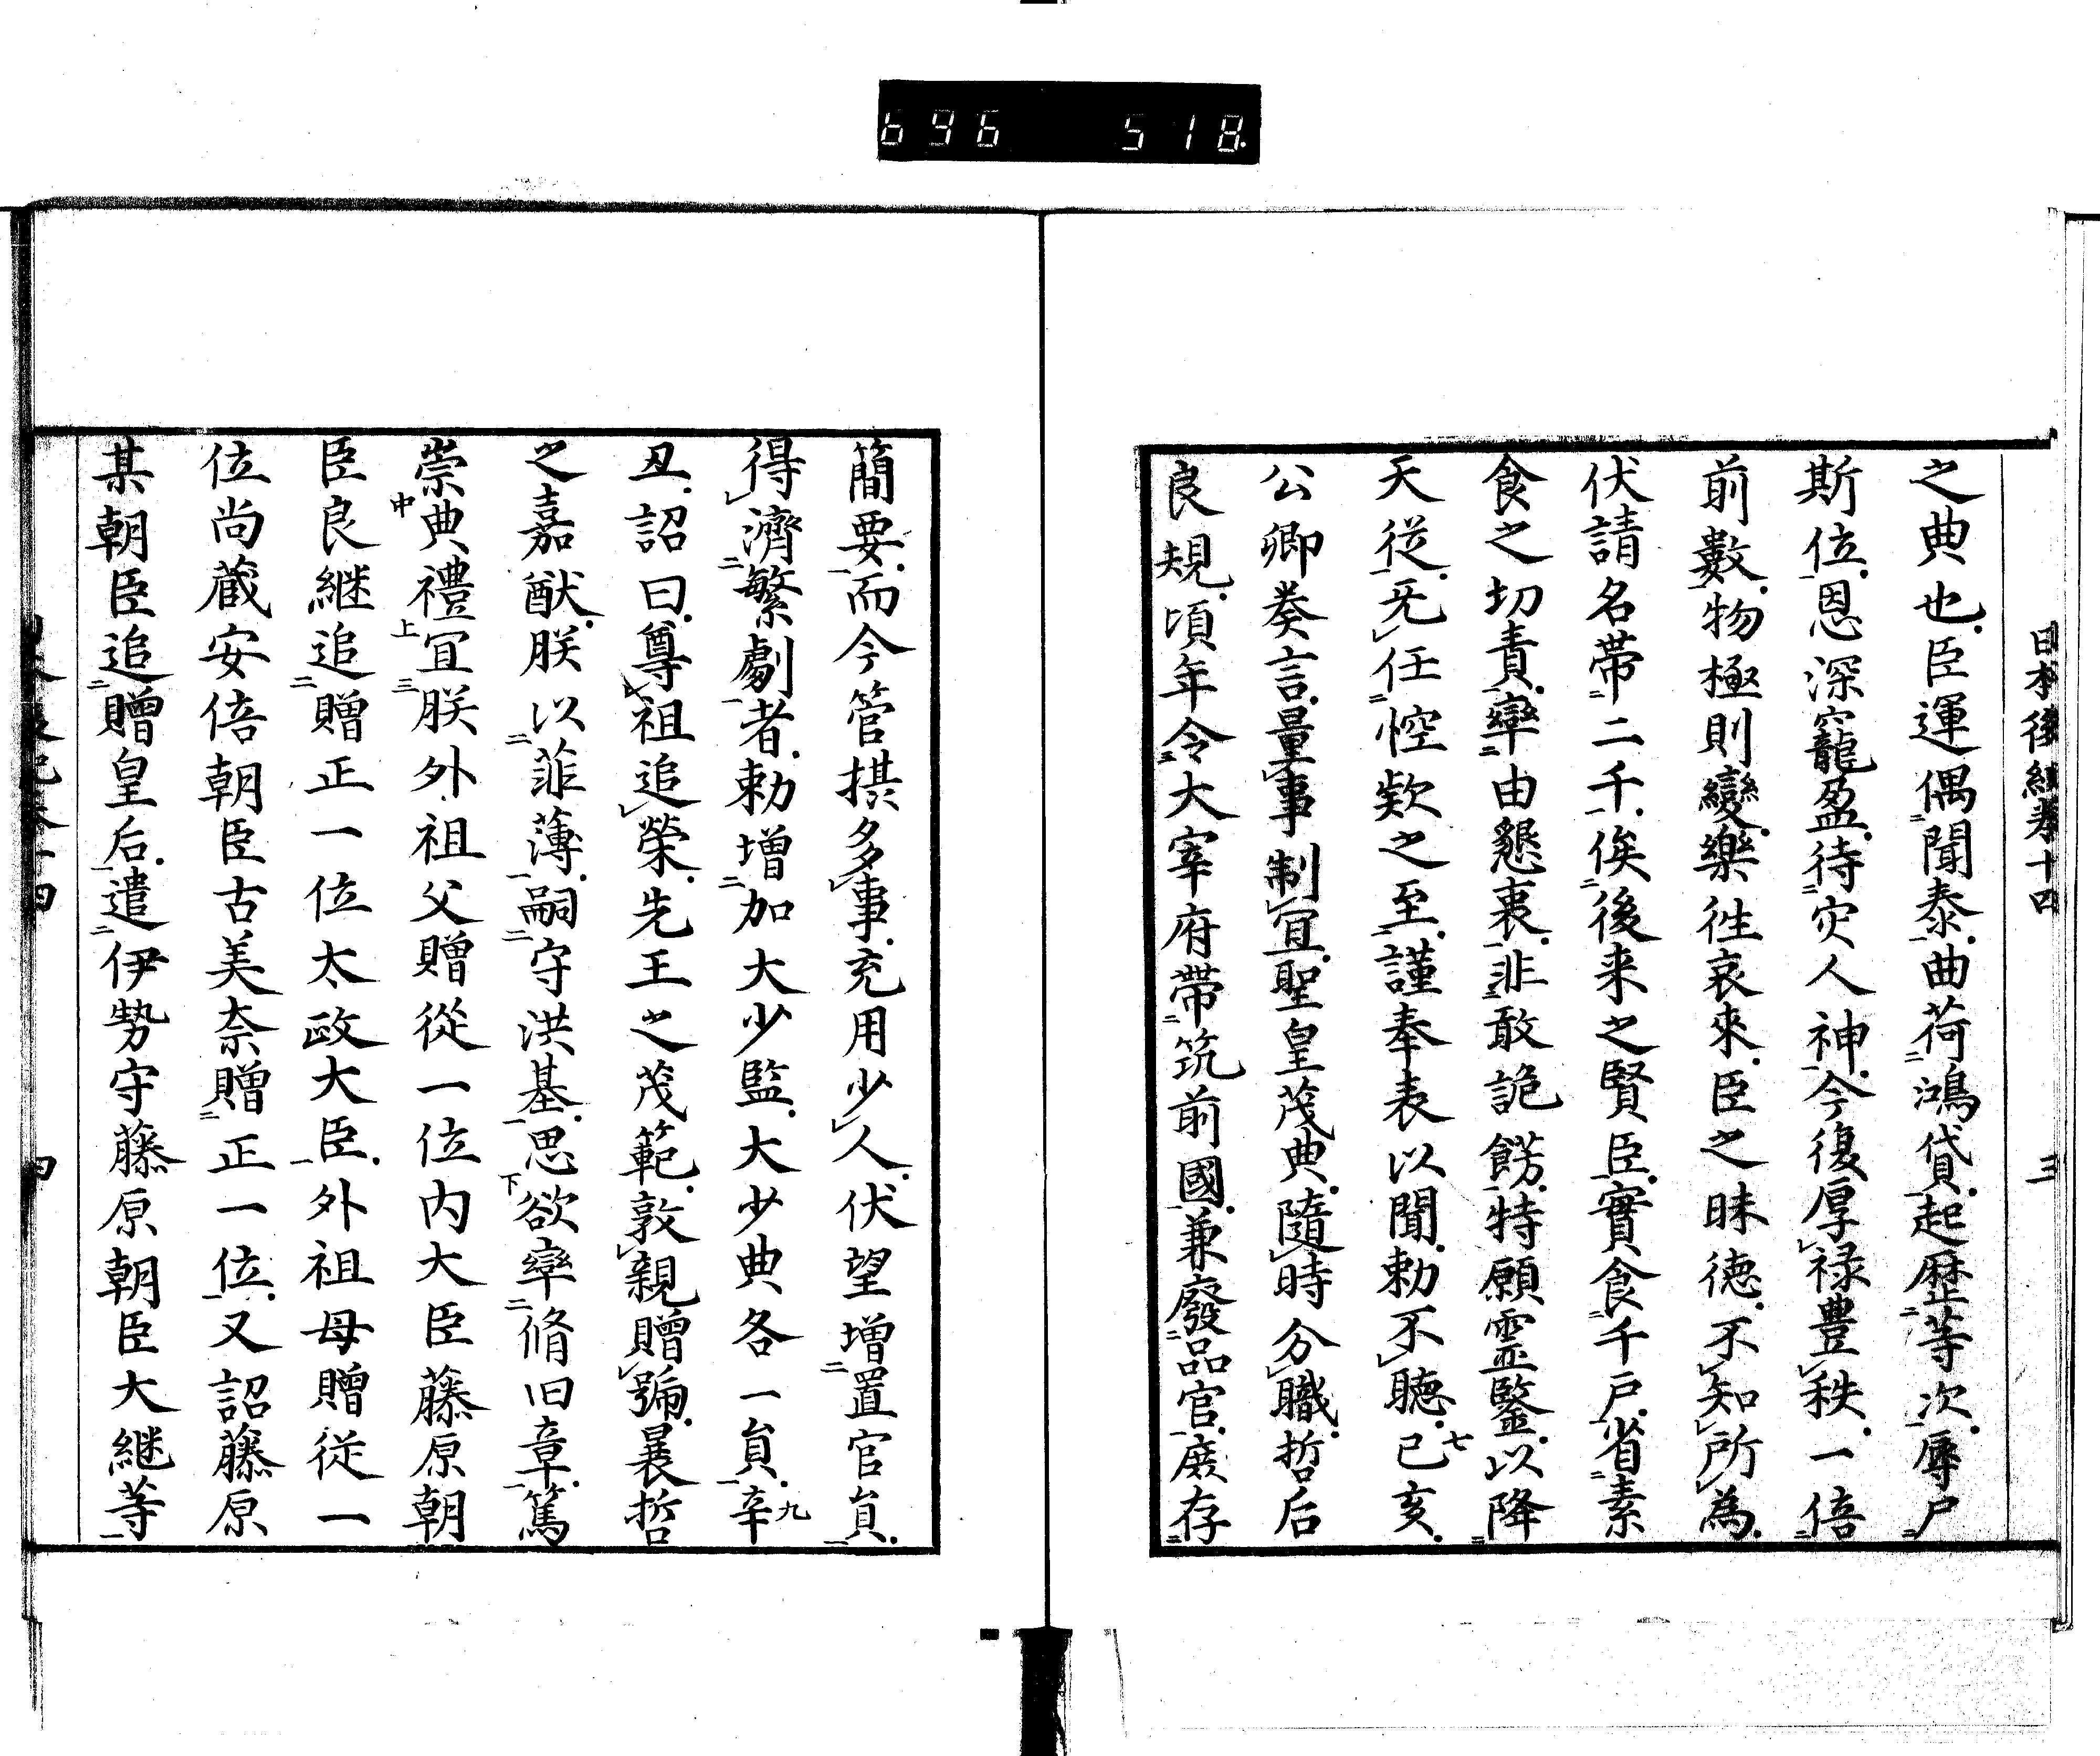 696 518
日本後紀巻十四 三
之典也臣運偶聞泰曲荷鴻貸起歷等次辱尸
斯位恩深寵盈待灾人神今復厚禄豊秩一倍
前數物極則變樂徃哀來臣之昧徳不知所為
伏請名帯二千俟後来之賢臣實食千戸省素
食之切責率由懇衷非敢詭餝特願霊鑒以降
天従无任悾欵之至謹奉表以聞勅不聴七己亥
公卿奏言量事制宜聖皇茂典隨時分職哲后
良規頃年令大宰府帯筑前國兼廢品官廣存
簡要而今管摂多事充用少人伏望増置官員
得濟繁劇者勅増加大少監大少典各一員九辛
丑詔曰尊祖追榮先王之茂範敦親贈号曩哲
之嘉猷朕以菲薄嗣守洪基思欲率脩旧章篤
崇典禮宜朕外祖父贈從一位内大臣藤原朝
臣良継追贈正一位太政大臣外祖母贈従一
位尚蔵安倍朝臣古美奈贈正一位又詔藤原
某朝臣追贈皇后遣伊勢守藤原朝臣大継等
四